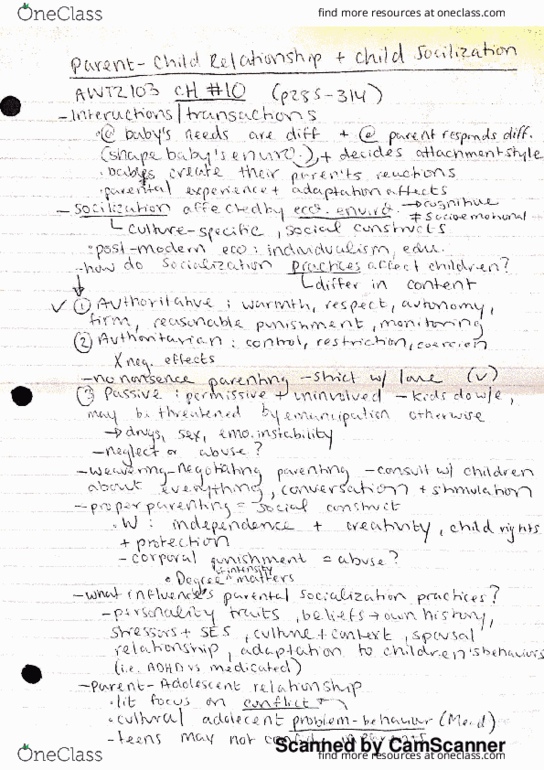 OneClass
find more resources at oneclass.com
Parent-Child Relationship + child Socilization
AWTZ103 CH #10 (p285-314)
- Interactions/transactions
• @ baby's needs are diff + @ parent responds diff.
(shape baby's envir.), + decides attachment style
• babies create their parents reactions
• parental experience + adaptation affects
- Socilization affected by eco. enviro. → cognitive
≠ socioemotional
↳ culture-specific, social constructs
• post-modern eco: individualism, edu.
- how do socialization practices affect children?
↳ differ in content
✓ ① Authoritative: warmth, respect, autonomy,
firm, reasonable punishment, monitoring
② Authoritarian: control, restriction, coercion
X neg. effects
- no nonsense parenting - strict w/ love (v)
③ Passive: permissive + uninvolved - kids do w/e,
may be threatened by emancipation otherwise
→ drugs, sex, emo. instability
- neglect or abuse?
- weavering-negotiating parenting - consult w/ children
about everything, conversation + stimulation
- proper parenting = social construct
• W: independence + creativity, child rights
+ protection
- corporal punishment = abuse?
• Degree + intensity matters
- what influences parental socialization practices?
- personality traits, beliefs → own history,
stressors + SES, culture + context, spousal
relationship, adaptation to children's behaviors
(i.e. ADHD vs medicated)
- Parent-Adolescent relationship
• lit focus on conflict
• cultural adolecent problem-behaviour (Mead)
- teens may not
Scanned by CamScanner
OneClass
find more resources at oneclass.com